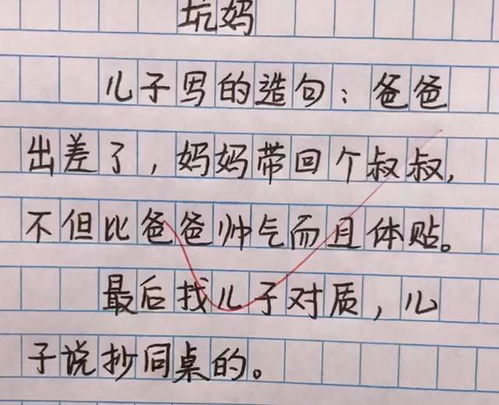 坑妈
儿子写的造句：爸爸
出差了，妈妈带回个叔叔，
不但比爸爸帅气而且体贴。
最后找儿子对质，儿
子说抄同桌的。